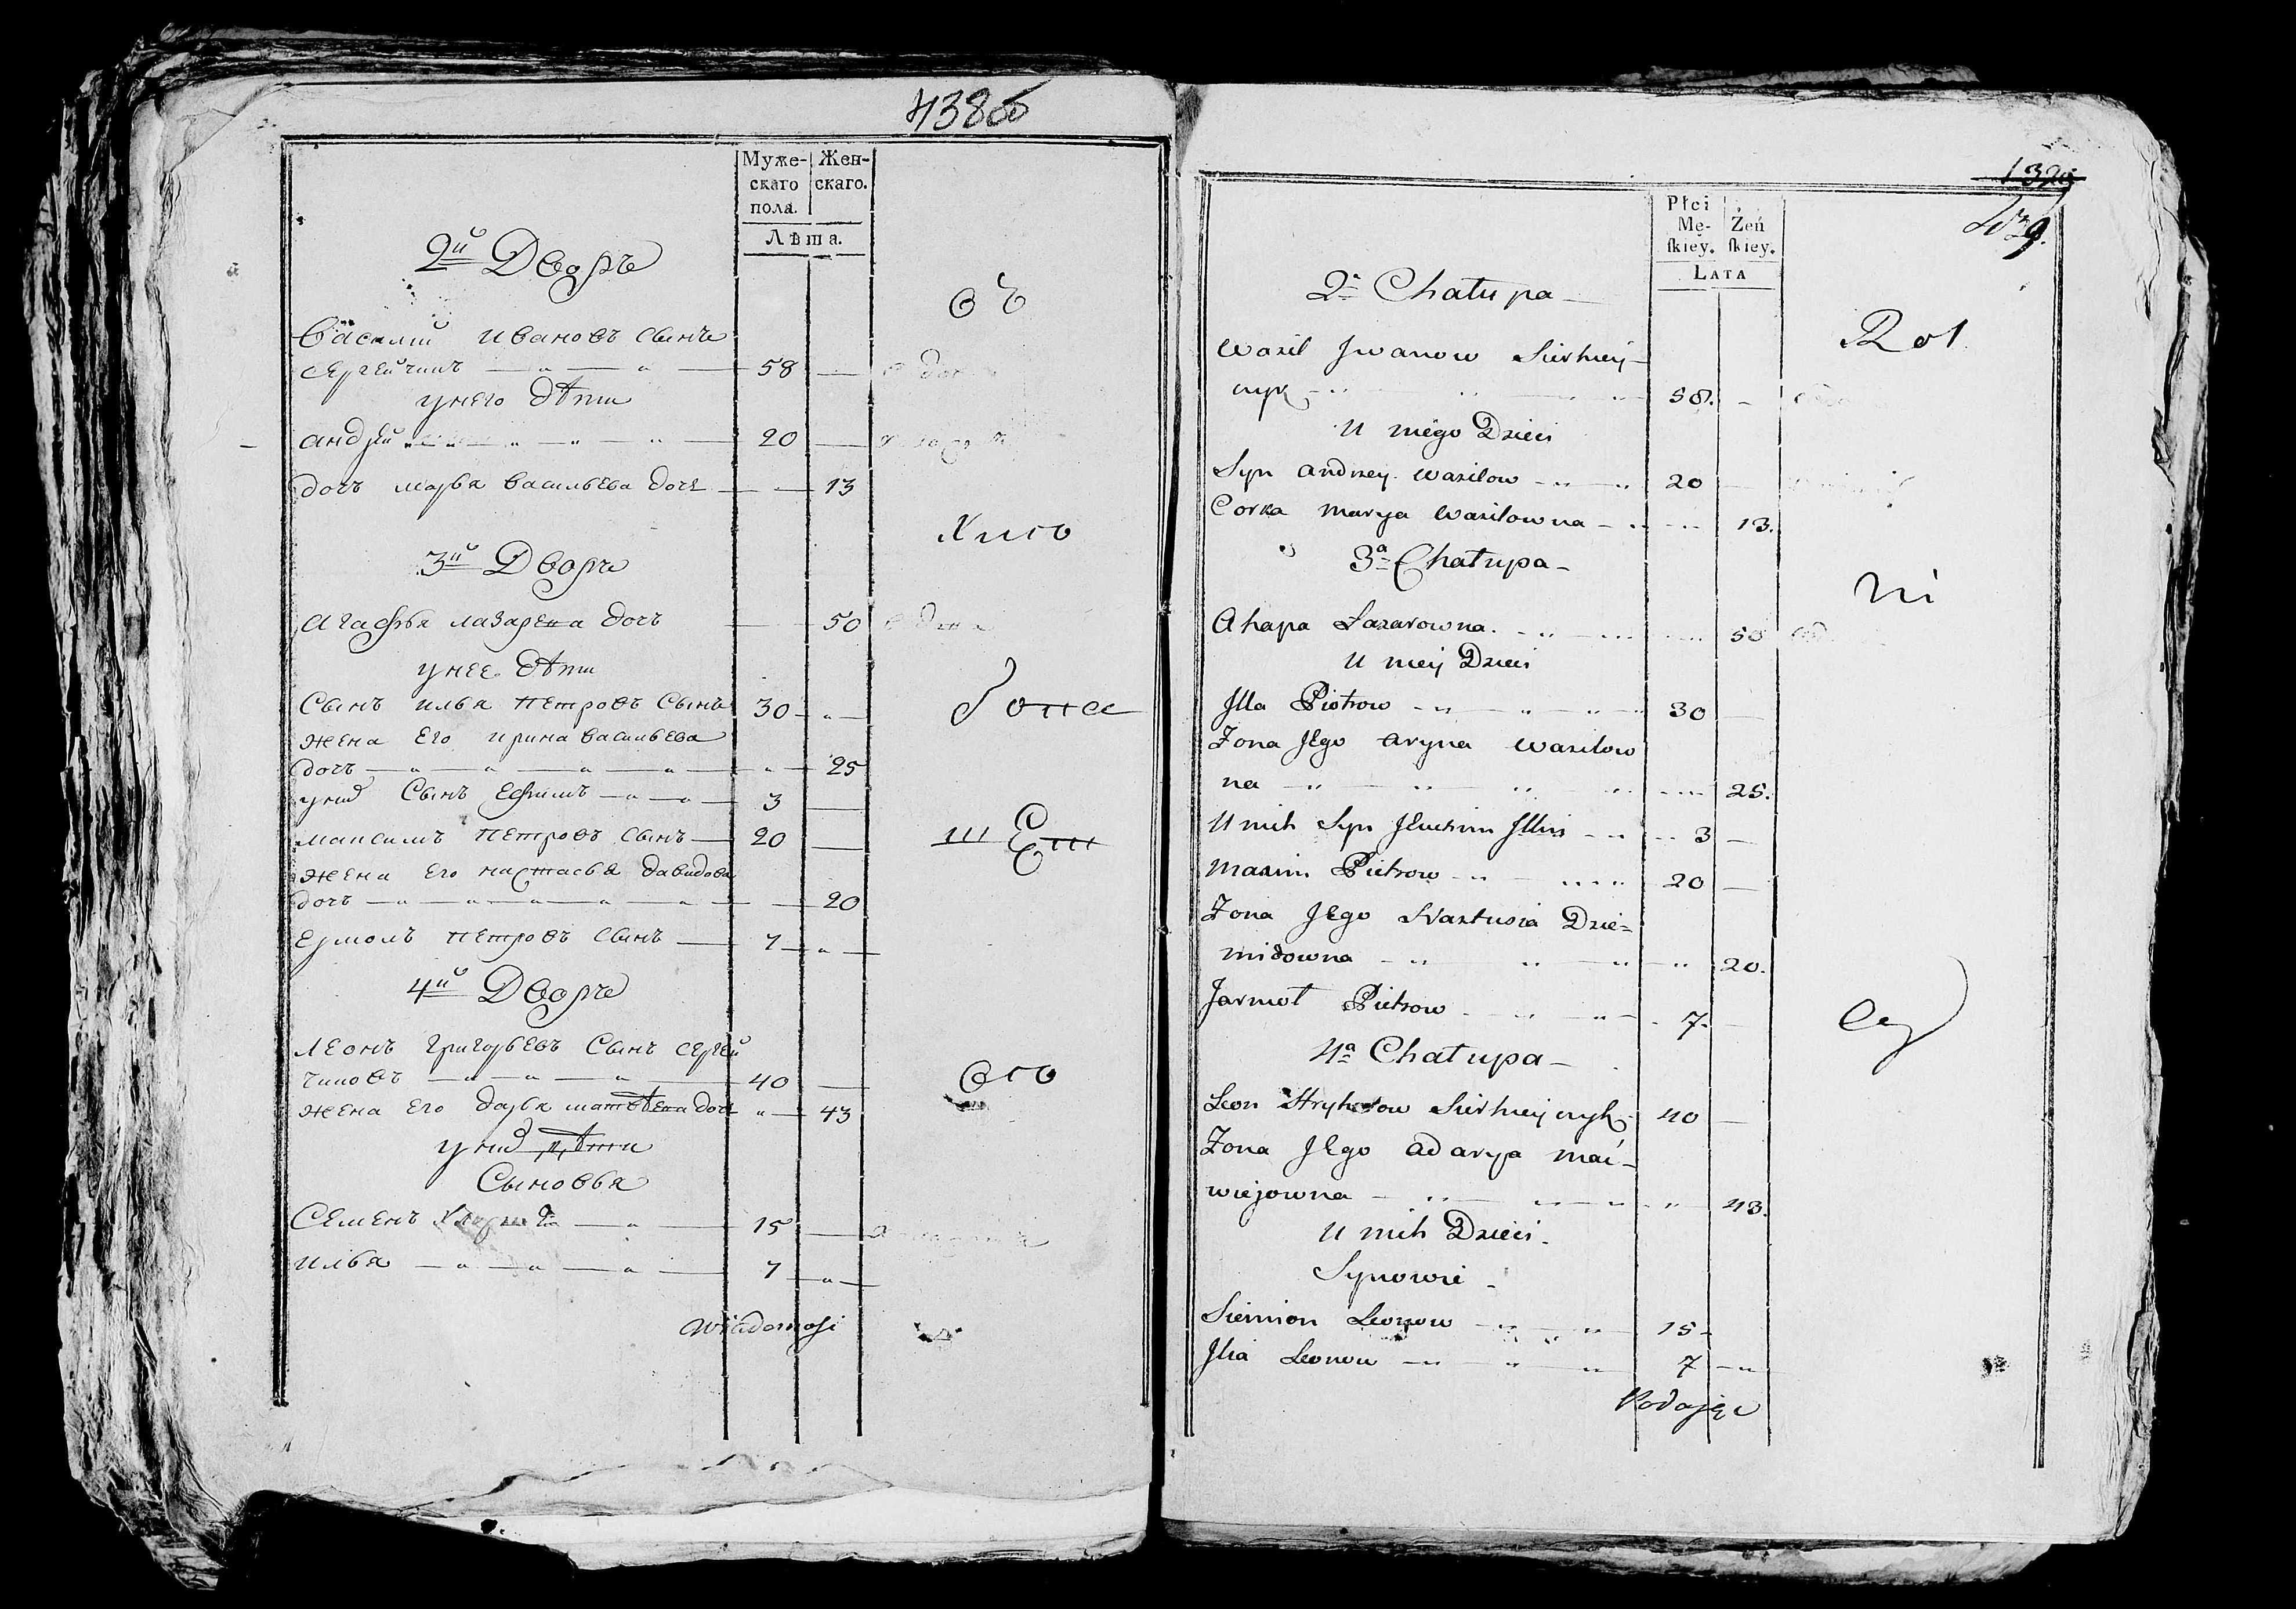 438об
Муже-
скаго
пола.
Жен-
скаго.
Лѣта.
2й Дворъ
Василий Ивановъ сынъ
Сергейчикъ 58 —
у него дѣти
Андрей 20 —
дочь Марья Васильева дочь — 13
3й Дворъ
Агафья Лазарева дочь 50
у нее дѣти
Сынъ Илья Петровъ Сынъ 30
жена Его Ирина Васильева
дочь 25
у них Сынъ Ефимъ 3
Максимъ Петровъ Сынъ 20
жена Его Настасья Давидова
дочь 20
Ермолъ Петровъ Сынъ 7
4й Дворъ
Леонъ Григорьевъ Сынъ Сергей
чиковъ 40
жена Его Дарья Матвѣева дочь 43
у них дѣти
Сыновья
Семенъ 15
Илья 7
Wiadomość
въ
Хи
его
Płci
Mę-
ſkiey.
Żeń
ſkiey.
Lata
1329
2a Chałupa
Wasil Jwanow Sierhiej-
czyk 58. —
U niego Dzieci
Syn Andrzey Wasilow 20
Corka Marya Wasilowna 13.
3a Chałupa
Ahapa Łazarowna. 50
U niej Dzieci
Jlla Piotrow 30
Żona Jego Aryna Wasilow
na 25.
U nich Syn Jllin 3
Maxim Pietrow 20
Żona Jego Nastusia Dzie=
midowna 20.
Jarmoł Pietrow 7.
4a Chałupa
Leon Hryhorow Sierhiejczyk 40
Żona Jego Adarya Mać-
wiejowna 43.
U nich Dzieci
Synowie
Siemion Leonow 15
Jlia Leonow 7
Podając
Rol
ni